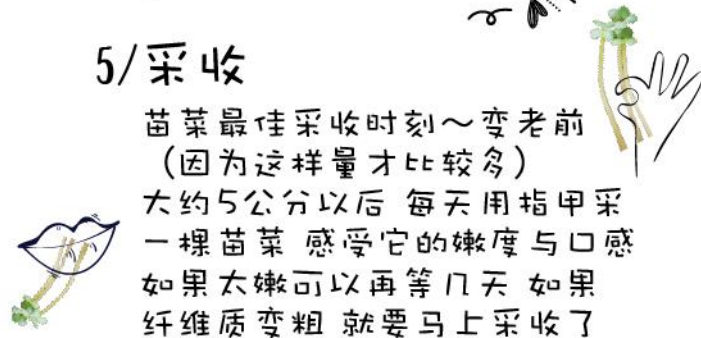 5/采收
苗菜最佳采收时刻～变老前
（因为这样量才比较多）
大约5公分以后 每天用指甲采
一棵苗菜 感受它的嫩度与口感
如果太嫩可以再等几天 如果
纤维质变粗 就要马上采收了